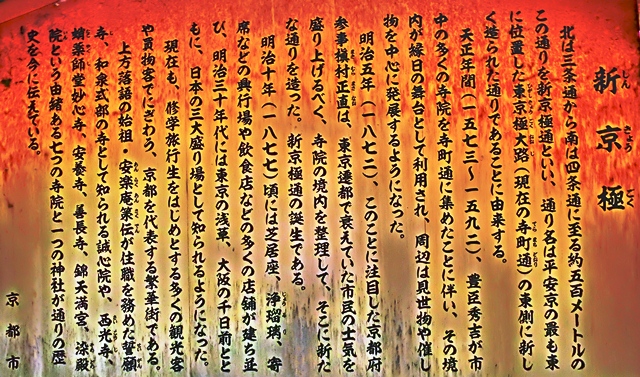 新京極
しんきょうごく
北は三条通から南は四条通に至る約五百メートルの
この通りを新京極通といい、通り名は平安京の最も東
に位置した東京極大路（現在の寺町通）の東側に新し
く造られた通りであることに由来する。
天正年間（一五七三〜一五九二）、豊臣秀吉が市
中の多くの寺院を寺町通に集めたことに伴い、その境
内が縁日の舞台として利用され、周辺は見世物や催し
物を中心に発展するようになった。
明治五年（一八七二）、このことに注目した京都府
参事槇村正直は、東京遷都で衰えていた市民の士気を
盛り上げるべく、寺院の境内を整理して、そこに新た
な通りを造った。新京極通の誕生である。
明治十年（一八七七）頃には芝居座、浄瑠璃、寄
席などの興行場や飲食店などの多くの店舗が建ち並
び、明治三十年代には東京の浅草、大阪の千日前とと
もに、日本の三大盛り場として知られるようになった。
現在も、修学旅行生をはじめとする多くの観光客
や買物客でにぎわう、京都を代表する繁華街である。
上方落語の始祖・安楽庵策伝が住職を務めた誓願
寺、和泉式部の寺として知られる誠心院や、西光寺、
蛸薬師堂妙心寺、安養寺、善長寺、錦天満宮、染殿
院という由緒ある七つの寺院と一つの神社が通りの歴
史を今に伝えている。
京都市